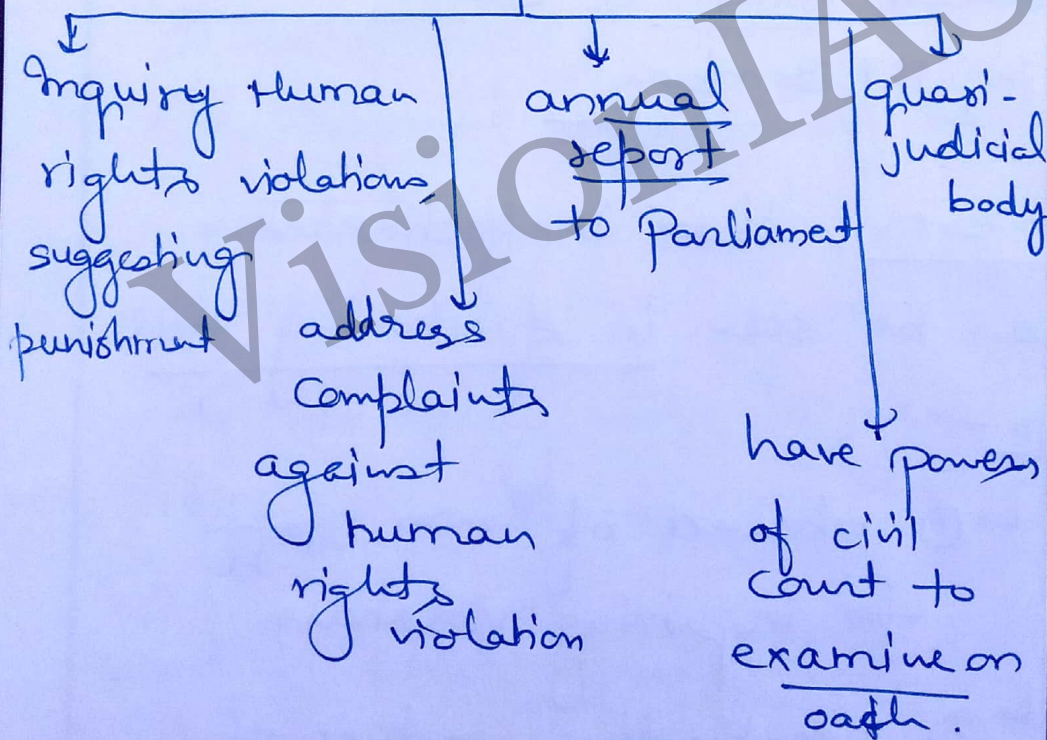 Inquiry Human
rights violations,
suggesting
punishment
address
Complaints
against
human
rights
violation
annual
report
to Parliament
have powers
of civil
court to
examine on
oath.
quasi-
judicial
body
VisionIAS